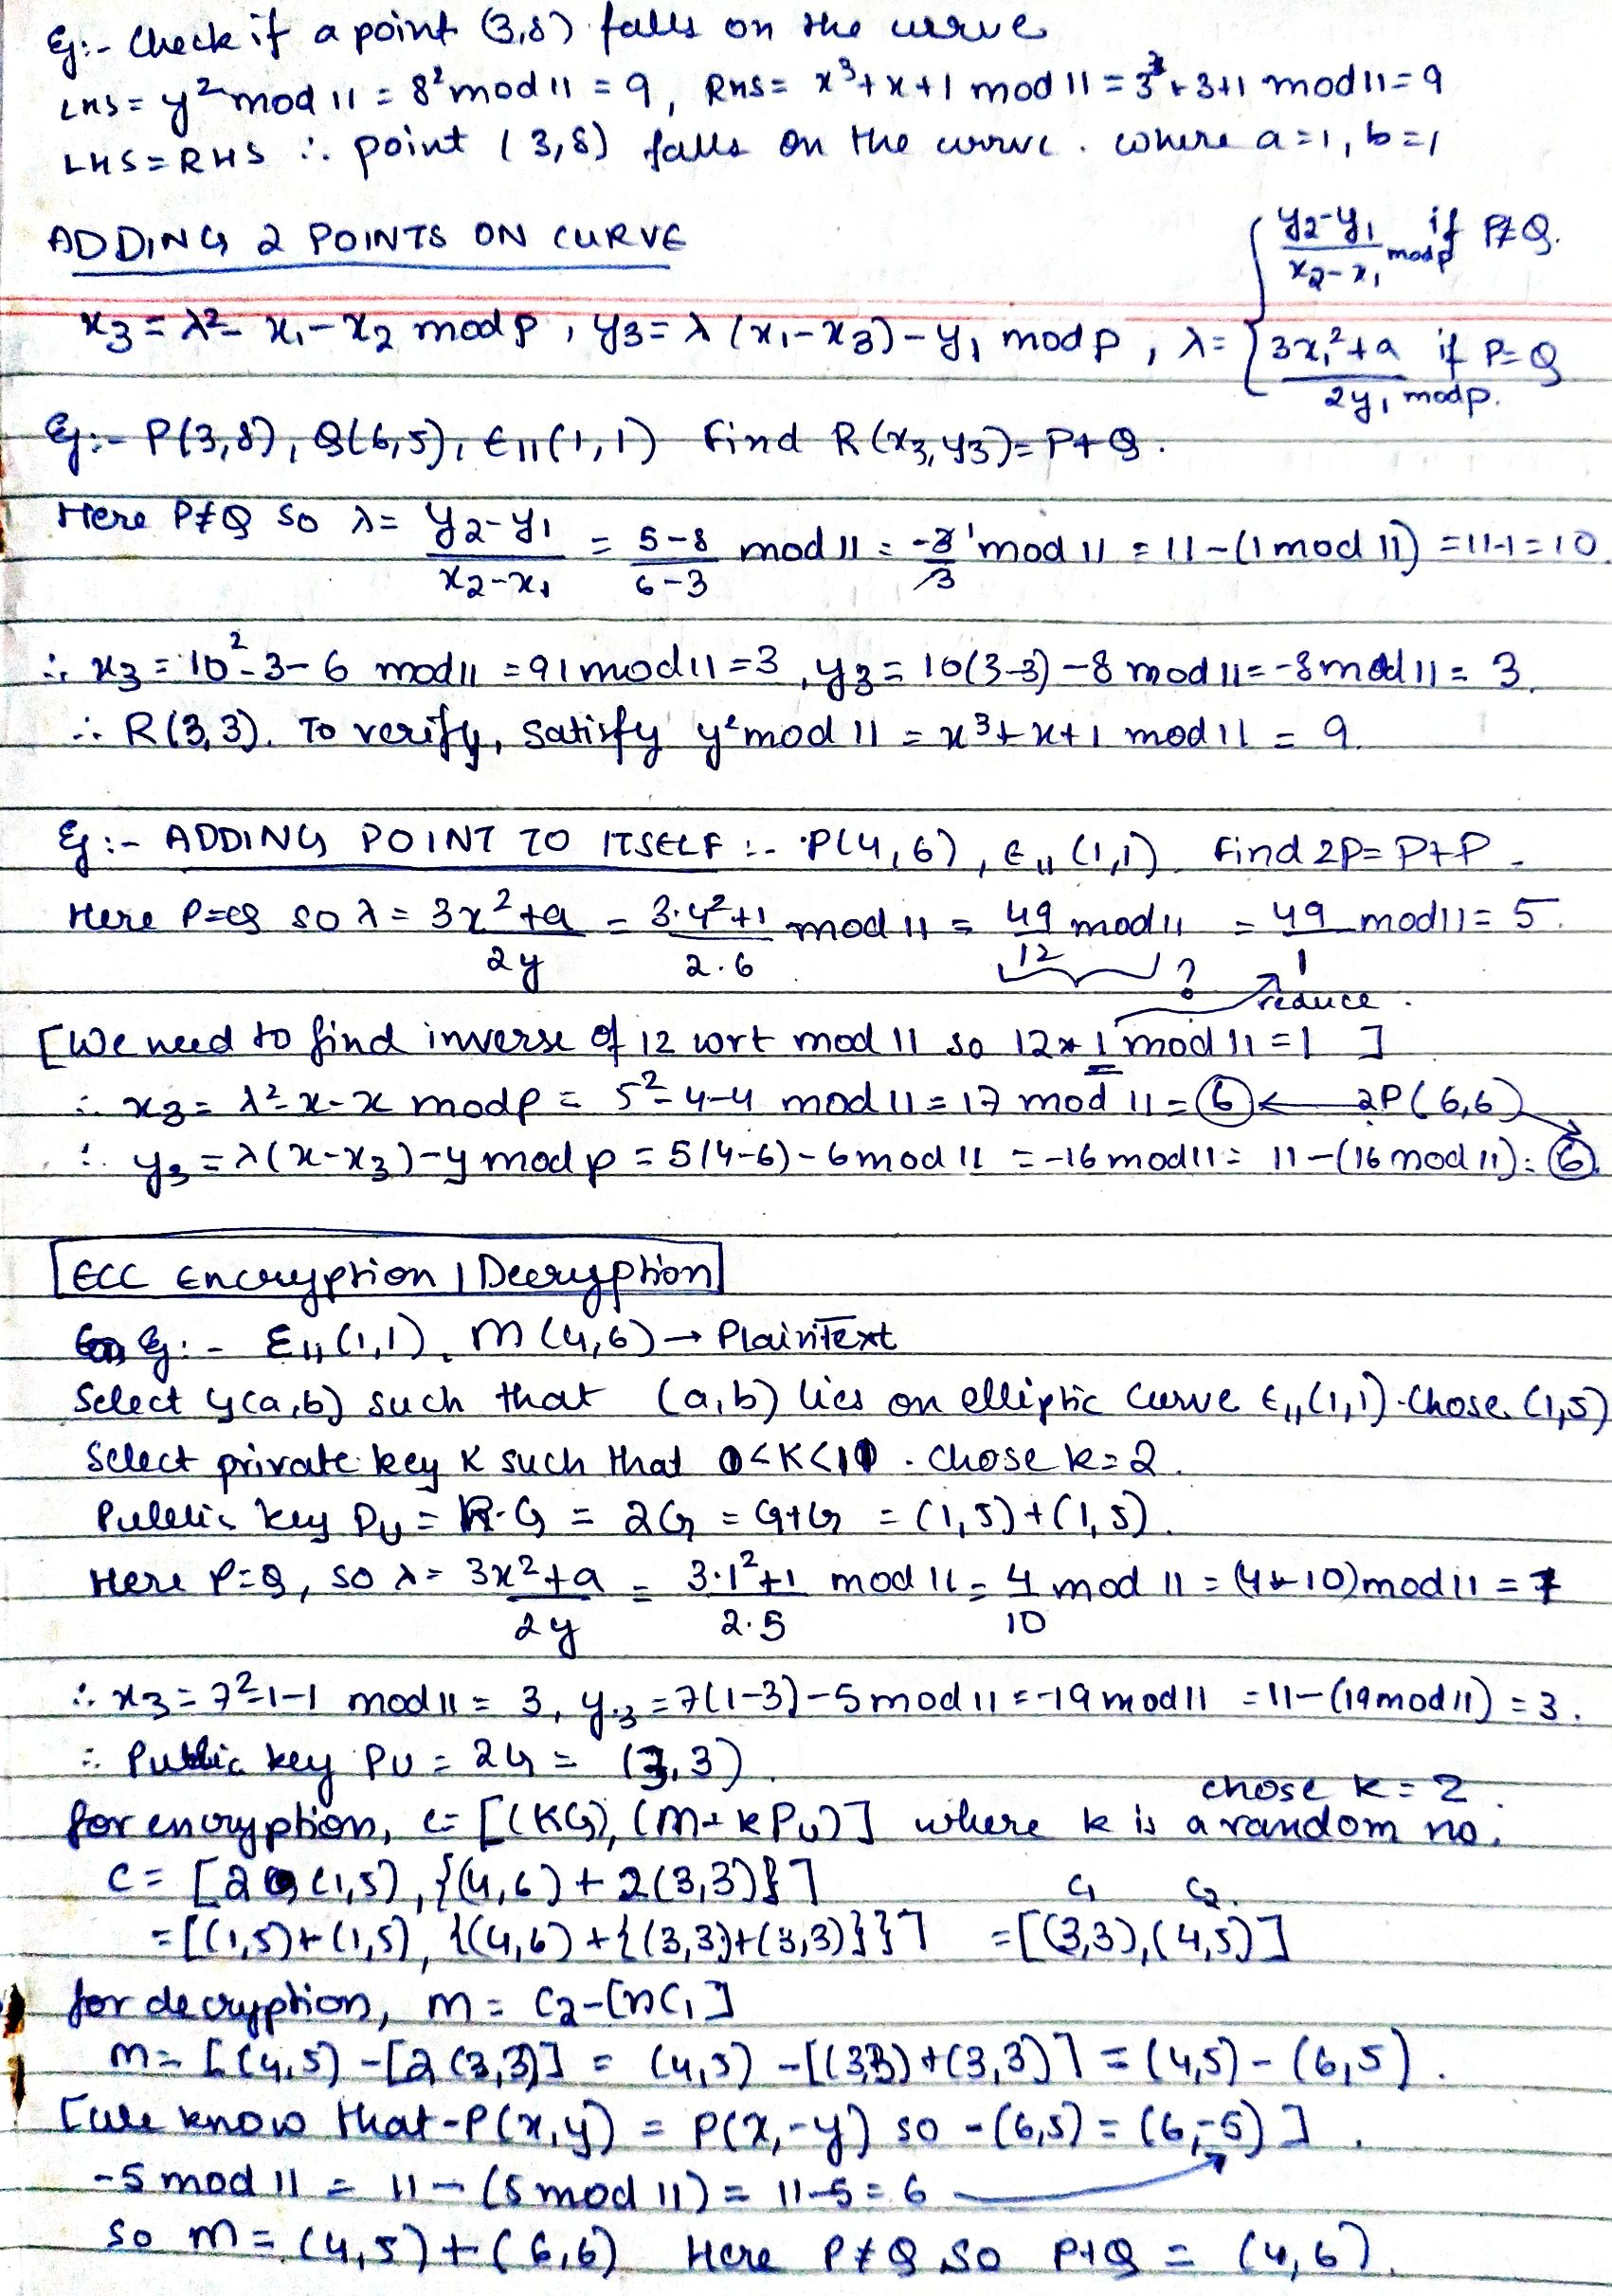 Eg:- Check if a point (3,8) falls on the curve
LHS = y² mod 11 = 8² mod 11 = 9, RHS = x³+x+1 mod 11 = 3³+3+1 mod 11 = 9
LHS = RHS ∴ point (3,8) falls on the curve. where a=1, b=1
ADDING 2 POINTS ON CURVE
x3 = λ² - x1 - x2 mod p, y3 = λ(x1-x3) - y1 mod p, λ = { (y2-y1)/(x2-x1) mod p if P≠Q. (3x1²+a)/(2y1) mod p. if P=Q
Eg:- P(3,8), Q(6,5), E11(1,1) Find R(x3,y3) = P+Q.
Here P≠Q so λ = (y2-y1)/(x2-x1) = (5-8)/(6-3) mod 11 = -3/3 1 mod 11 = 11-(1 mod 11) = 11-1 = 10.
∴ x3 = 10²-3-6 mod 11 = 91 mod 11 = 3, y3 = 10(3-3)-8 mod 11 = -8 mod 11 = 3.
∴ R(3,3). To verify, satisfy y² mod 11 = x³+x+1 mod 11 = 9.
Eg:- ADDING POINT TO ITSELF :- P(4,6), E11(1,1) Find 2P = P+P.
Here P=Q so λ = (3x²+a)/(2y) = (3·4²+1)/(2·6) mod 11 = 49/12 mod 11 = 49/1 mod 11 = 5.
? reduce.
[We need to find inverse of 12 wrt mod 11 so 12*1 mod 11 = 1 ]
∴ x3 = λ²-x-x mod p = 5²-4-4 mod 11 = 17 mod 11 = 6 ← 2P(6,6)
∴ y3 = λ(x-x3)-y mod p = 5(4-6)-6 mod 11 = -16 mod 11 = 11-(16 mod 11) = 6.
ECC Encryption | Decryption
Eg:- E11(1,1), M(4,6) → PlainText
Select G(a,b) such that (a,b) lies on elliptic curve E11(1,1). Chose (1,5)
Select private key K such that 0<K<10. Chose k=2.
Public key PU = K·G = 2G = G+G = (1,5)+(1,5).
Here P=Q, so λ = (3x²+a)/(2y) = (3·1²+1)/(2·5) mod 11 = 4/10 mod 11 = (4*10) mod 11 = 7
∴ x3 = 7²-1-1 mod 11 = 3, y3 = 7(1-3)-5 mod 11 = -19 mod 11 = 11-(19 mod 11) = 3.
∴ Public key PU = 2G = (3,3).
chose k = 2.
for encryption, c = [(KG), (M+kPU)] where k is a random no.
C = [2(1,5), {(4,6) + 2(3,3)}]
C1 C2.
= [(1,5)+(1,5), {(4,6)+{(3,3)+(3,3)}}] = [(3,3),(4,5)]
for decryption, m = C2-[nC1]
m = [(4,5)-[2(3,3)] = (4,5)-[(3,3)+(3,3)] = (4,5)-(6,5).
[We know that -P(x,y) = P(x,-y) so -(6,5) = (6,-5)].
-5 mod 11 = 11-(5 mod 11) = 11-5 = 6
So m = (4,5)+(6,6) Here P≠Q so P+Q = (4,6).